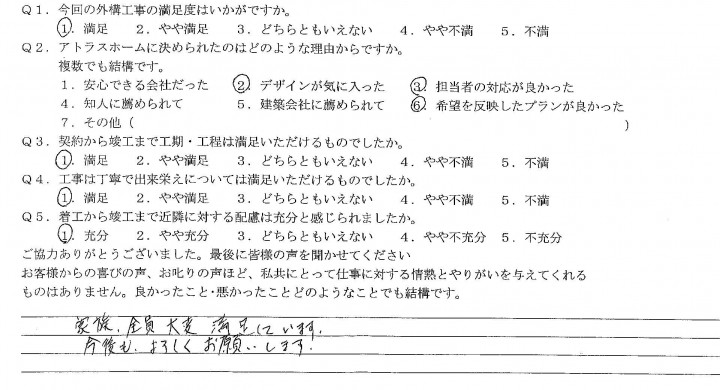 Q1．今回の外構工事の満足度はいかがですか。
①．満足　2．やや満足　3．どちらともいえない　4．やや不満　5．不満
Q2．アトラスホームに決められたのはどのような理由からですか。
複数でも結構です。
1．安心できる会社だった　②．デザインが気に入った　③．担当者の対応が良かった
4．知人に薦められて　5．建築会社に薦められて　⑥．希望を反映したプランが良かった
7．その他（　）
Q3．契約から竣工まで工期・工程は満足いただけるものでしたか。
①．満足　2．やや満足　3．どちらともいえない　4．やや不満　5．不満
Q4．工事は丁寧で出来栄えについては満足いただけるものでしたか。
①．満足　2．やや満足　3．どちらともいえない　4．やや不満　5．不満
Q5．着工から竣工まで近隣に対する配慮は充分と感じられましたか。
①．充分　2．やや充分　3．どちらともいえない　4．やや不充分　5．不充分
ご協力ありがとうございました。最後に皆様の声を聞かせてください
お客様からの喜びの声、お叱りの声ほど、私共にとって仕事に対する情熱とやりがいを与えてくれる
ものはありません。良かったこと・悪かったことどのようなことでも結構です。
家族、全員 大変 満足しています。
今後も、よろしく お願いします。